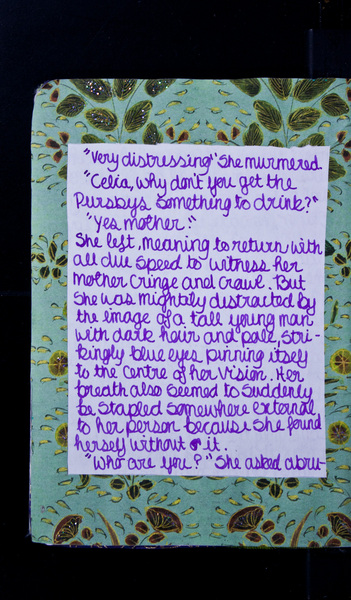 "Very distressing" She murmered.
"Celia, why don't you get the
Pursbys something to drink?"
"Yes mother."
She left, meaning to return with
all due speed to witness her
mother cringe and crawl. But
she was mightily distracted by
the image of a tall young man
with dark hair and pale, stri-
kingly blue eyes pinning itself
to the centre of her vision. Her
breath also seemed to suddenly
be stapled somewhere external
to her person because she found
herself without it.
"Who are you?" She asked abru-